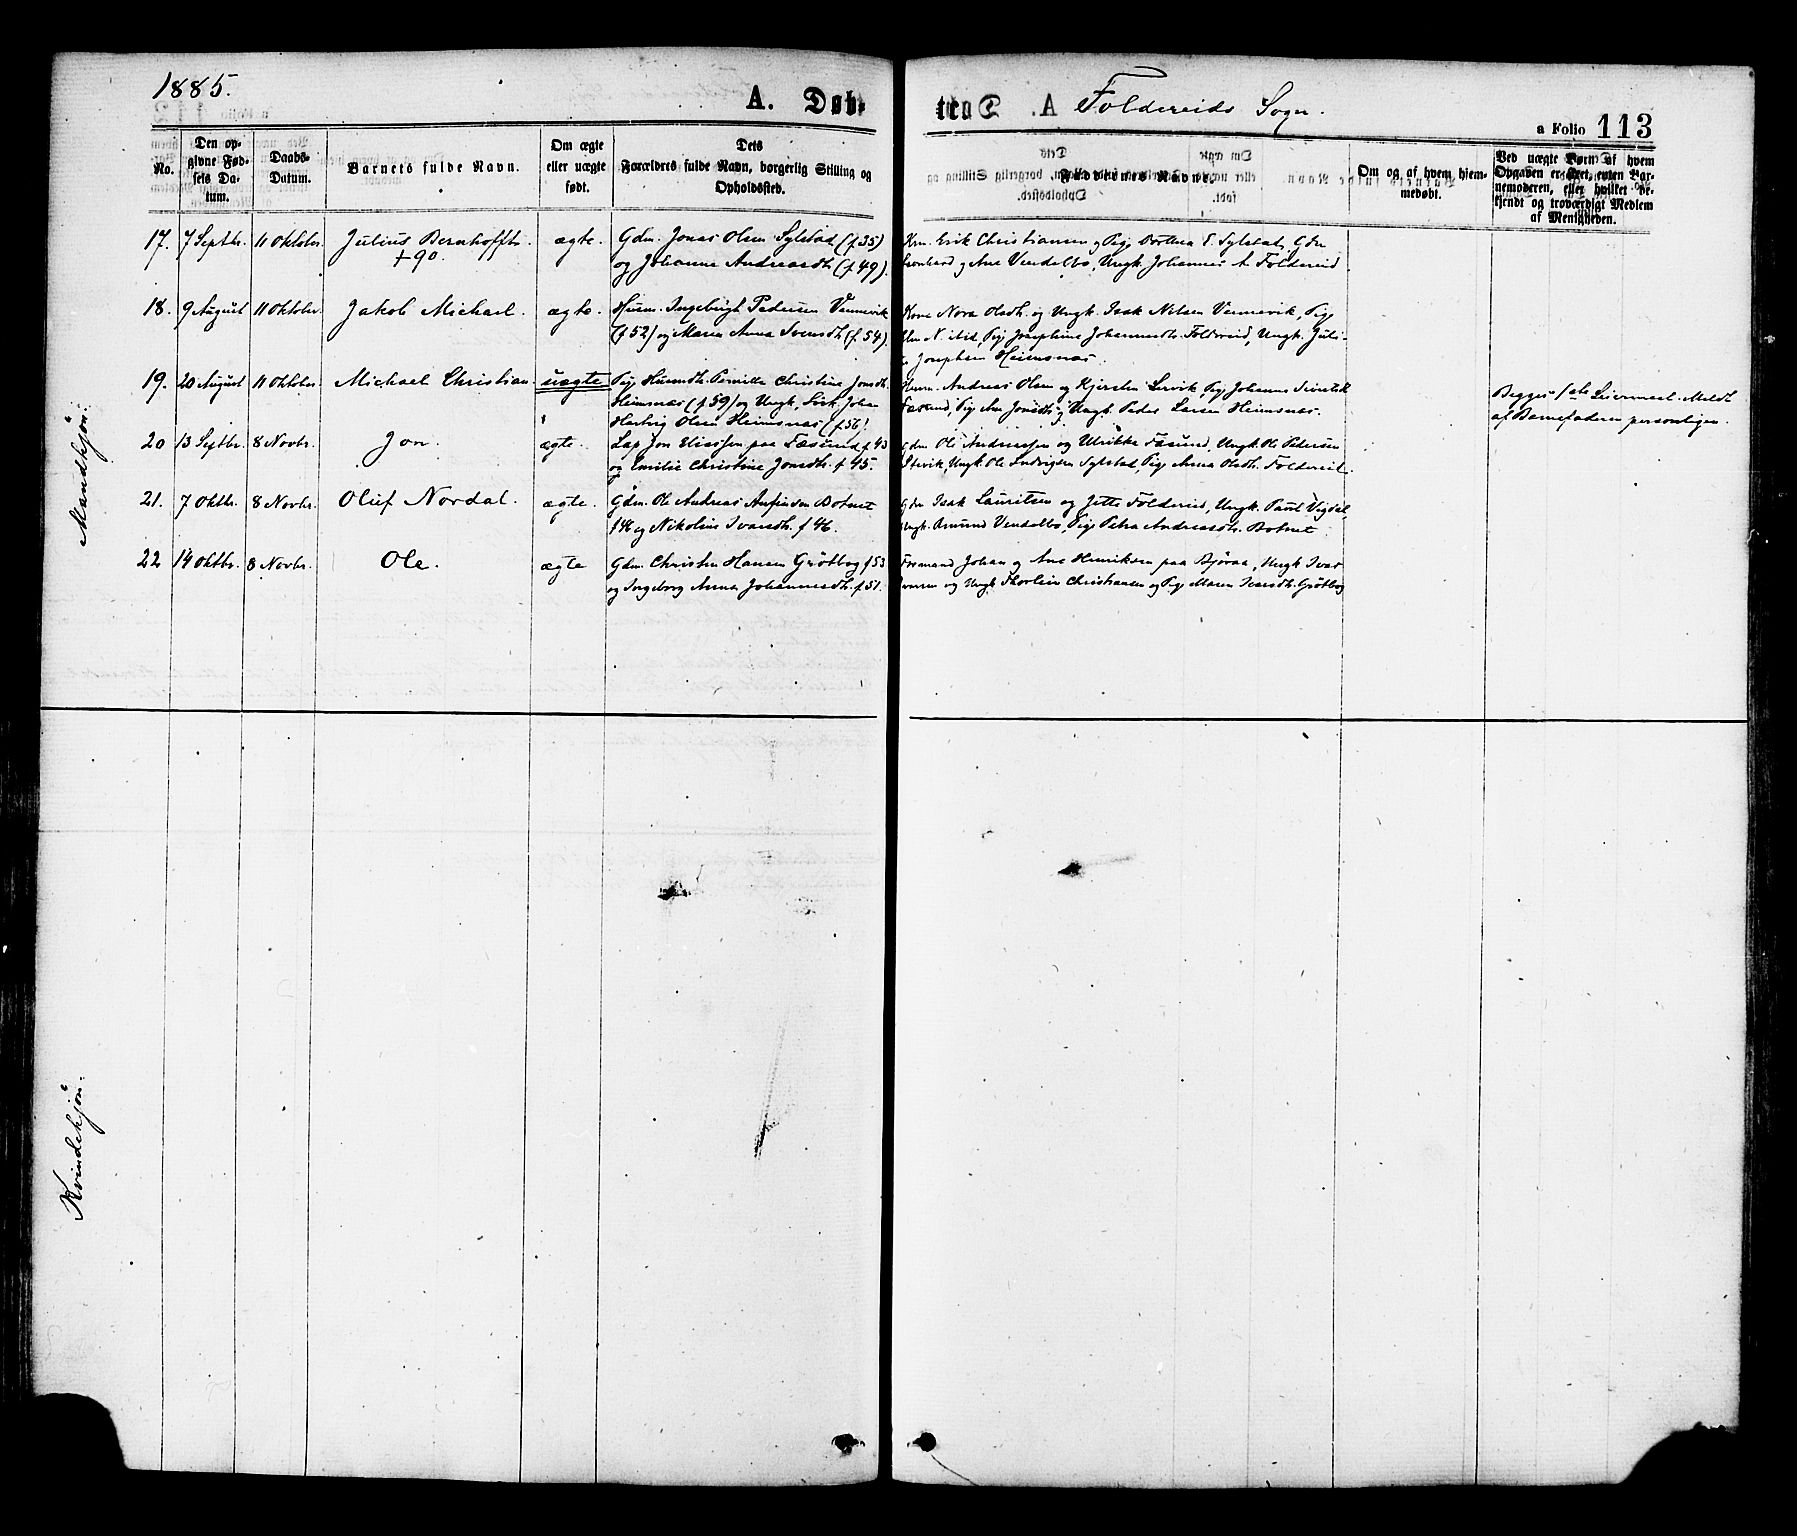 1885.
A. Døb-
Foldereids Sogn.
a Folio 113
No.
Den op-
givne Fød-
sels Da-
tum.
Daabs-
Datum.
Barnets fulde Navn.
Om ægte
eller uægte
født.
Dets
Forældres fulde Navn, borgerlig Stilling og
Opholdssted.
Faddernes Navne.
Om og af hvem hjem-
medøbt.
Ved uægte Børn af hvem
Opgaven er skeet, enten Bar-
nemoderen, eller hvilket be-
kjendt og troværdigt Medlem
af Menigheden.
Mandkjøn.
17. 7 Septbr. 11 Oktober. Julius Bernhoffth. ægte. Gdm. Jonas Olsen Sylstad (f. 35)
+90. og Johanna Andreasdh. (f. 49).
Erik Christiansen og Pig. Dorthea Sylstad, Gdm
og Ane Vendelbo, Ungk. Johannes A. Foldereid
18. 9 August 11 Oktober. Jakob Michael. ægte. Husm. Ingebrigt Pedersen Vennevik
(f. 52) og Maren Anna Svensdh. (f. 54)
Kone Nora Olsdh. og Ungk. Isak Nilsen Vennevik, Pig.
Pig. Josephine Johannesdh. Foldereid, Ungk. Juli-
Josephsen Heimsnæs.
19. 20 August 11 Oktober. Michael Christian. uægte Pig. Husmdh. Pernilla Christina Jonsdh.
Heimsnæs (f. 59) og Ungk. Johan
Hartvig Olsen Heimsnæs (f. 56)
Husm. Andreas Olsen og Kjersten Lervik, Pig. Johanna
Fæsund, Pig. Ane Jonsdh., Ungk. Peder Larsen Heimsnæs.
Begges 1ste Leiermaal. Meldt
af Barnefaderen personligen.
20 13 Septbr. 8 Novbr. Jon. ægte. Lap Jon paa Fæsund f. 43
og Emilie Christine Jonsdh. f. 45.
Gdm. Ole Andreassen og Ulrikke Fæsund, Ungk. Ole Pedersen
Ungk. Ole Ludvigsen Sylstad, Pig. Anna Olsdh. Foldereid.
21. 7 Oktbr. 8 Novbr. Oluf Nordal. ægte. Gdm. Ole Andreas Botnet
og Nikoline Ivarsdh. f. 46.
Gdm Isak Lauritsen og Jette Foldereid, Ungk. Paul
Ungk. Amund Vendelbo, Pig. Petra Andreasdh. Botnet.
22 14 Oktbr. 8 Novbr. Ole. ægte Gdm. Christen Hansen Grøtbog f. 53
og Ingeborg Anna Johannesdh. f. 51.
Formand Johan og Ane Henriksen paa Bjøraa, Ungk. Ivar
og Ungk. Christiansen og Pig. Maren Ivarsdh. Grøtbog
Kvindekjøn.